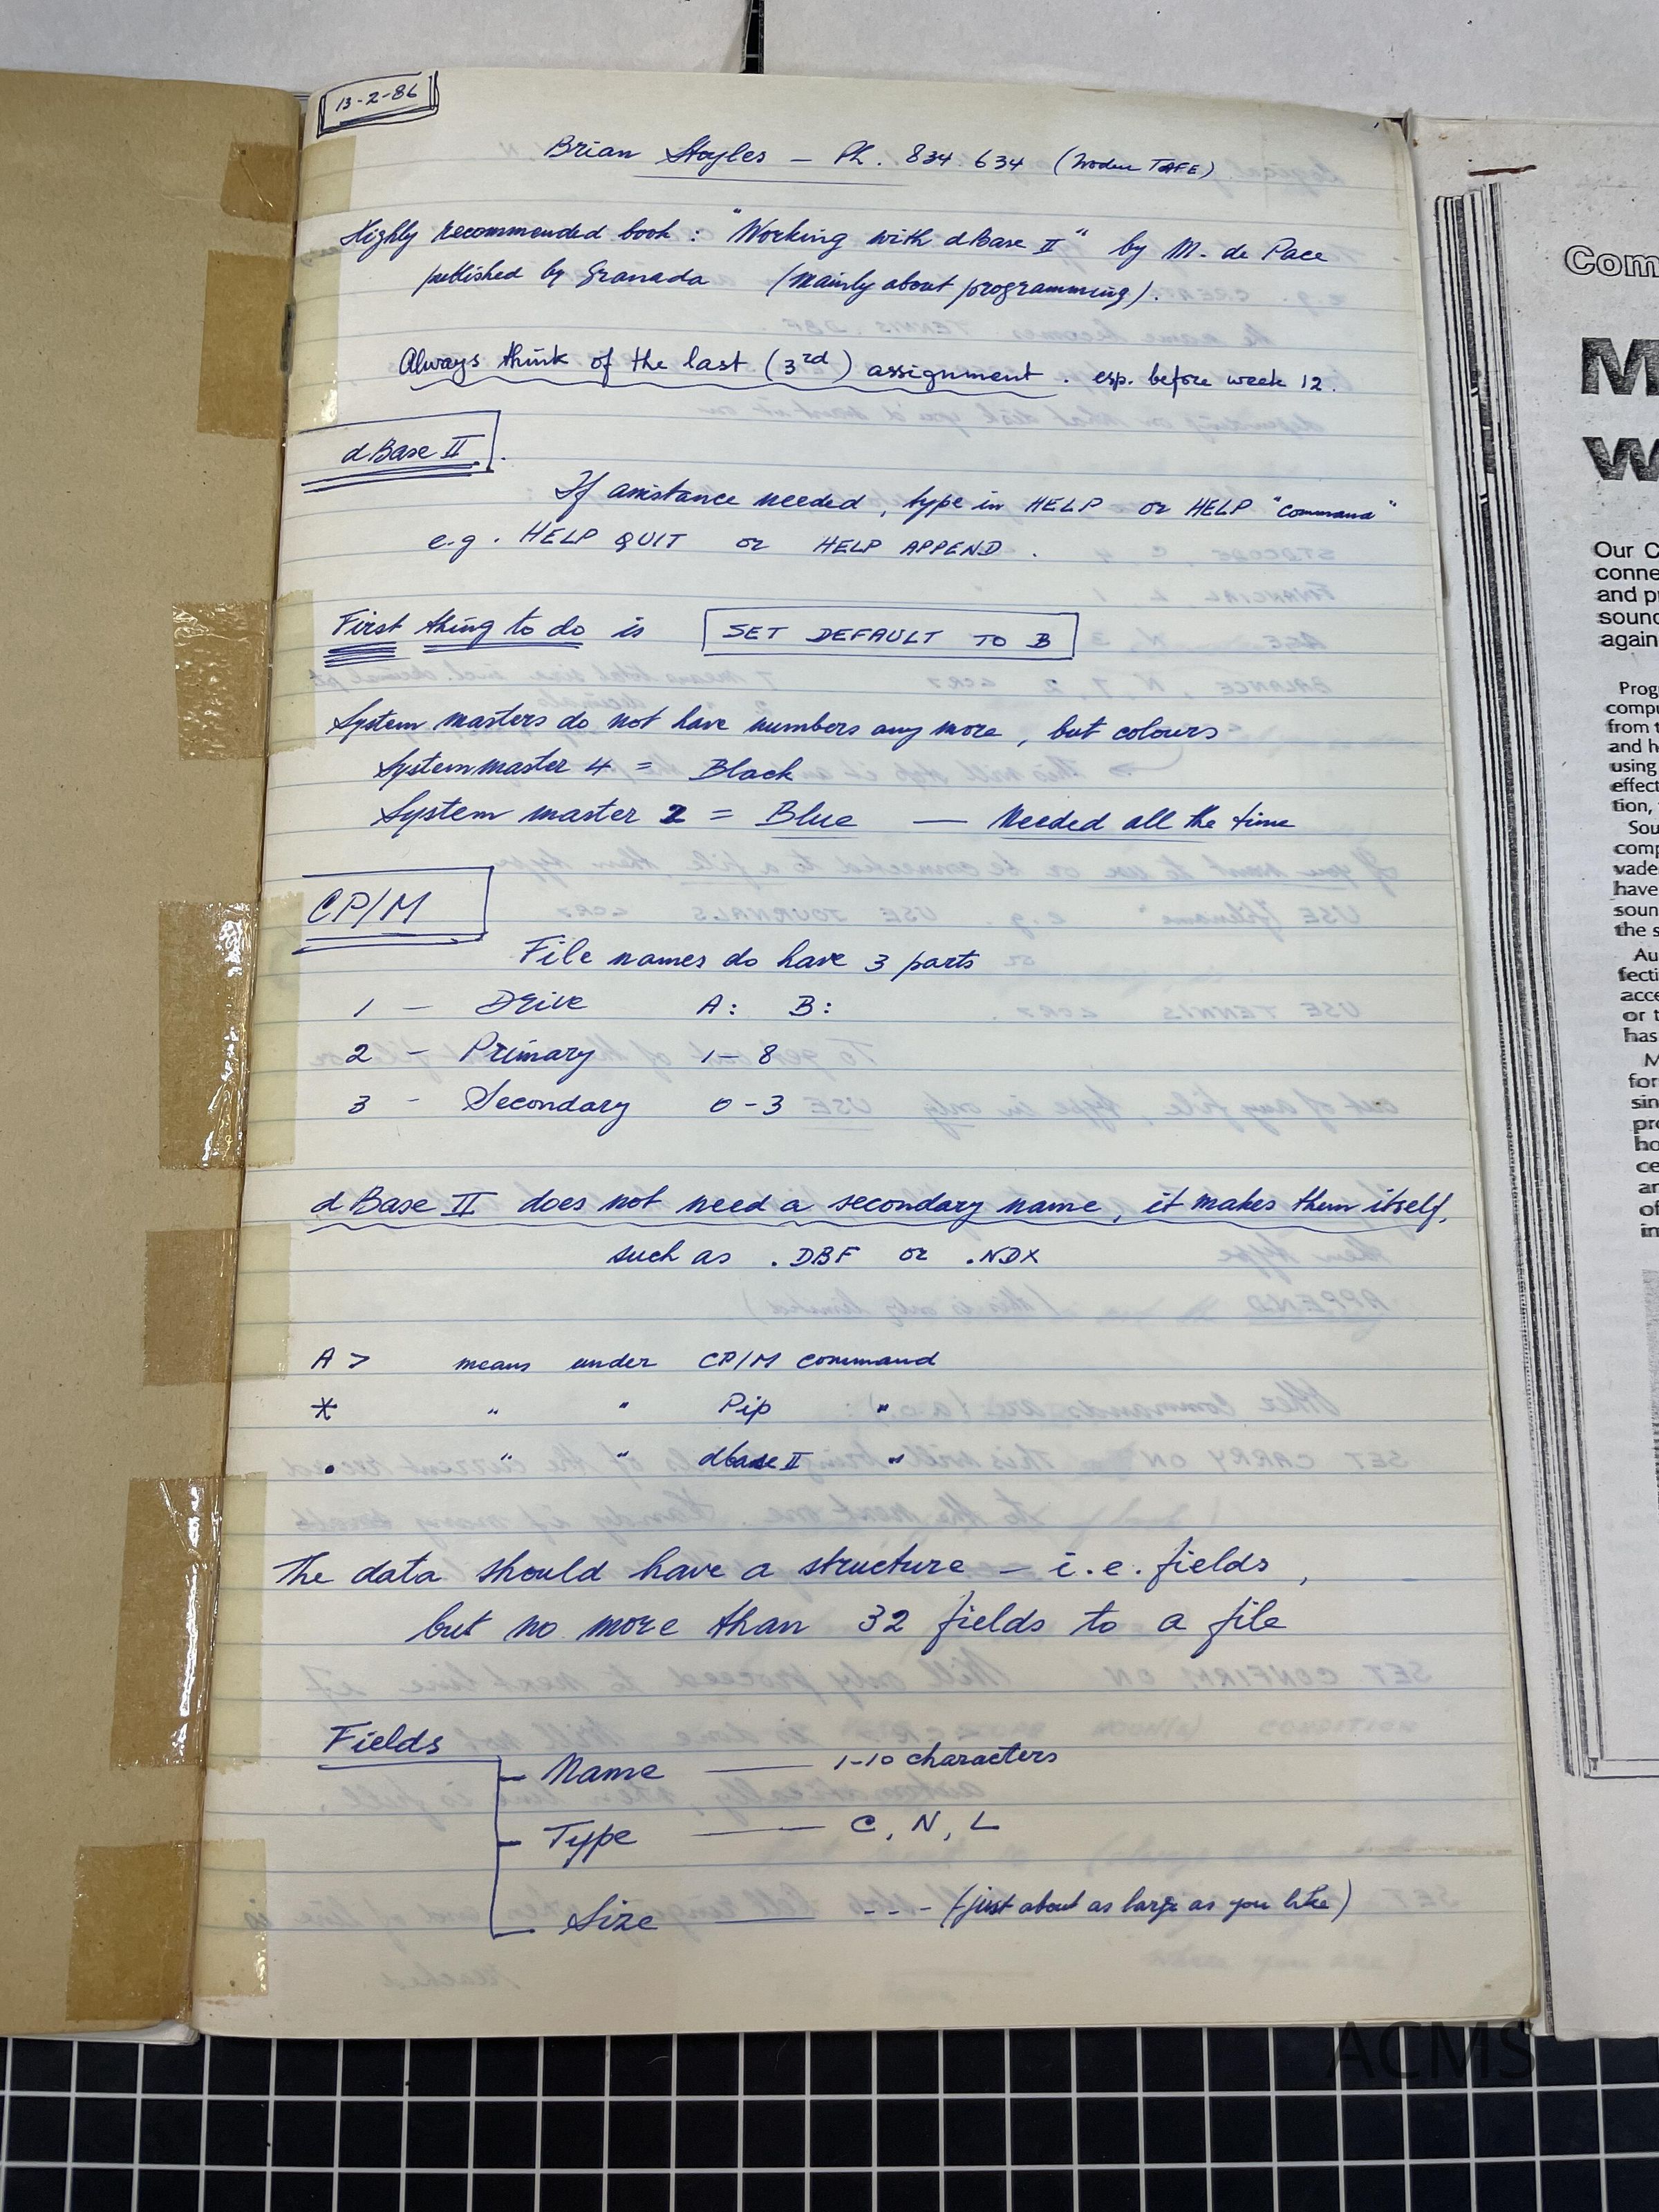 13-2-86
Brian Styles — Ph. 834.634 (Woden TAFE)
Highly recommended book : "Working with dBase II" by M. de Pace
published by Granada (mainly about programming).
Always think of the last (3rd) assignment. esp. before week 12.
dBase II.
If assistance needed, type in HELP or HELP "command"
e.g. HELP QUIT or HELP APPEND.
First thing to do is SET DEFAULT TO B
System masters do not have numbers any more, but colours
System master 4 = Black
System master 2 = Blue — Needed all the time
CP/M
File names do have 3 parts
1 — Drive A: B:
2 — Primary 1-8
3 - Secondary 0-3
dBase II does not need a secondary name, it makes them itself,
such as .DBF or .NDX
A> means under CP/M command
* " " Pip "
. " " dbase II "
The data should have a structure — i.e. fields,
but no more than 32 fields to a file
Fields
Name — 1-10 characters
Type — C, N, L
Size — --- (just about as large as you like)
Com
M
W
Our C
conne
and p
sound
again
Prog
compu
from t
and h
using
effect
tion,
Sou
comp
vade
have
soun
the s
Au
fecti
acce
or t
has
M
for
sin
pro
ho
ce
an
of
in
ACMS